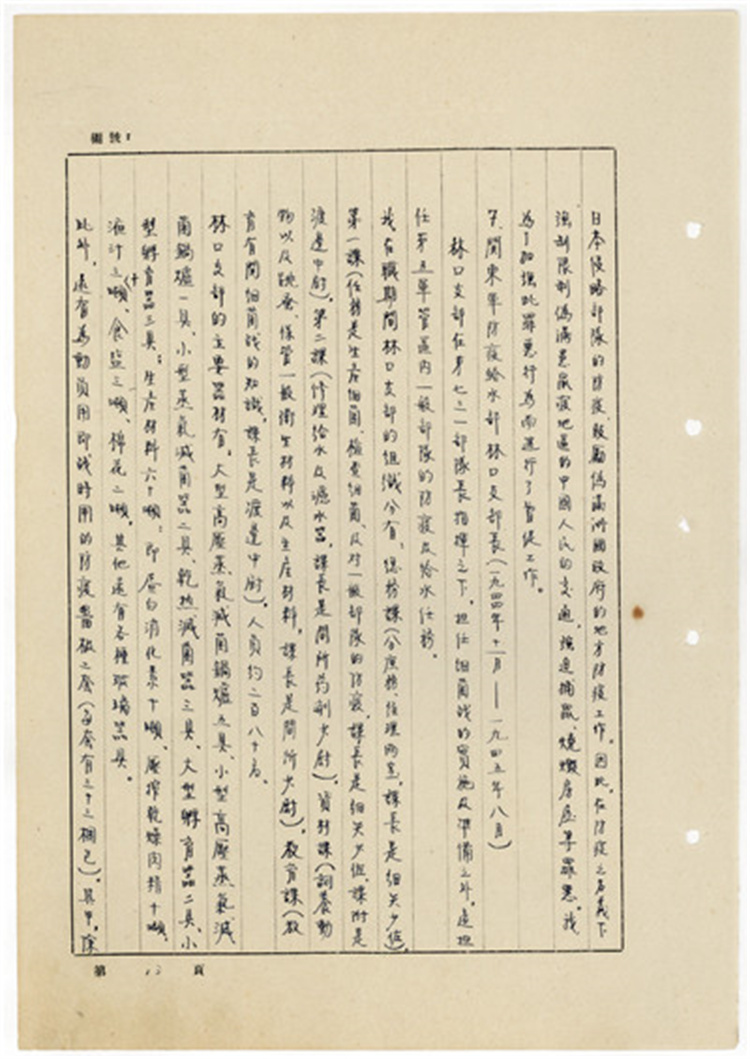 編號:
日本侵略部隊的防疫、鼓勵偽滿洲國政府的地方防疫工作。因此、在防疫之名義下
強制限制偽滿患鼠疫地區的中國人民的交通、強迫捕鼠、燒燬房屋等罪惡。我
為了加強此罪惡行為而進行了督促工作。
7、關東軍防疫給水部林口支部長(一九四四年十一月——一九四五年八月)
林口支部在第七三一部隊長指揮之下、担任細菌戰的實施及準備之外、還担
任第五軍管區內一般部隊的防疫及給水任務。
我在職期間林口支部的組織分有、總務課(分庶務、經理兩室、課長是細矢少佐)
第一課(任務是生產細菌、檢索細菌、及对一般部隊的防疫、課長是細矢少佐、課附是
渡邊中尉)。第二課(修理給水及濾水器、課長是間所药剂少尉)。資材課(飼養動
物以及跳蚤、保管一般衛生材料以及生產材料、課長是間所少尉)。教育課(教
育有關細菌战的知識、課長是渡邊中尉)。人員約二百八十名。
林口支部的主要器材有、大型高壓蒸氣滅菌鍋爐五具、小型高壓蒸氣滅
菌鍋爐一具、小型蒸氣滅菌器二具、乾热滅菌器三具、大型孵育器二具、小
型孵育器三具;生產材料六十噸、即蛋白消化素十噸、壓搾乾燥肉精十噸、
液汁三十噸、食盐三噸、棉花二噸。其他還有各種玻璃器具。
此外、還有為動員用即战時用的防疫醫极二套(每套有三十三梱包)。其中、除
第 13 頁